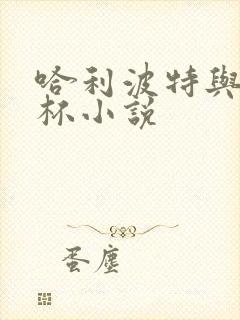 哈利波特與
杯小說
蛋塵